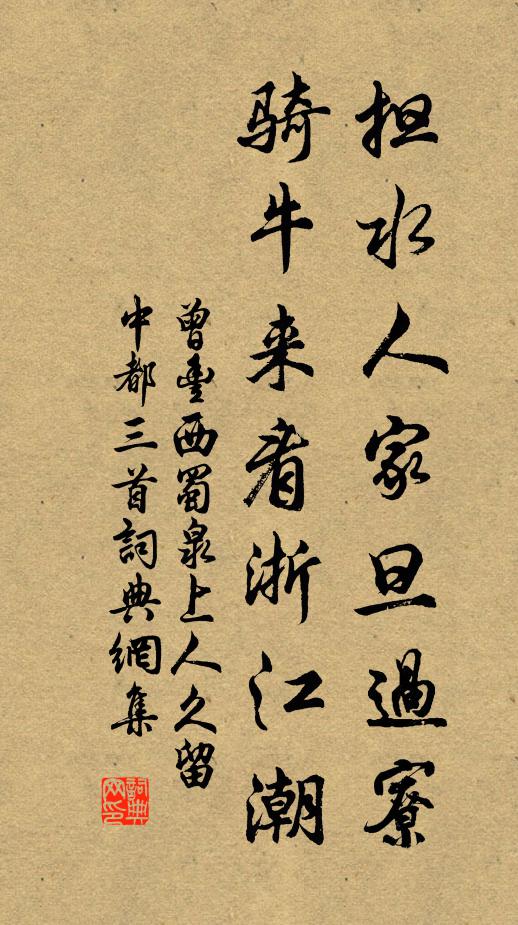 担水人家旦過寮
骑牛来看浙江潮
曾豊西蜀泉上人久留
中都三首詞典網集
詞典网印